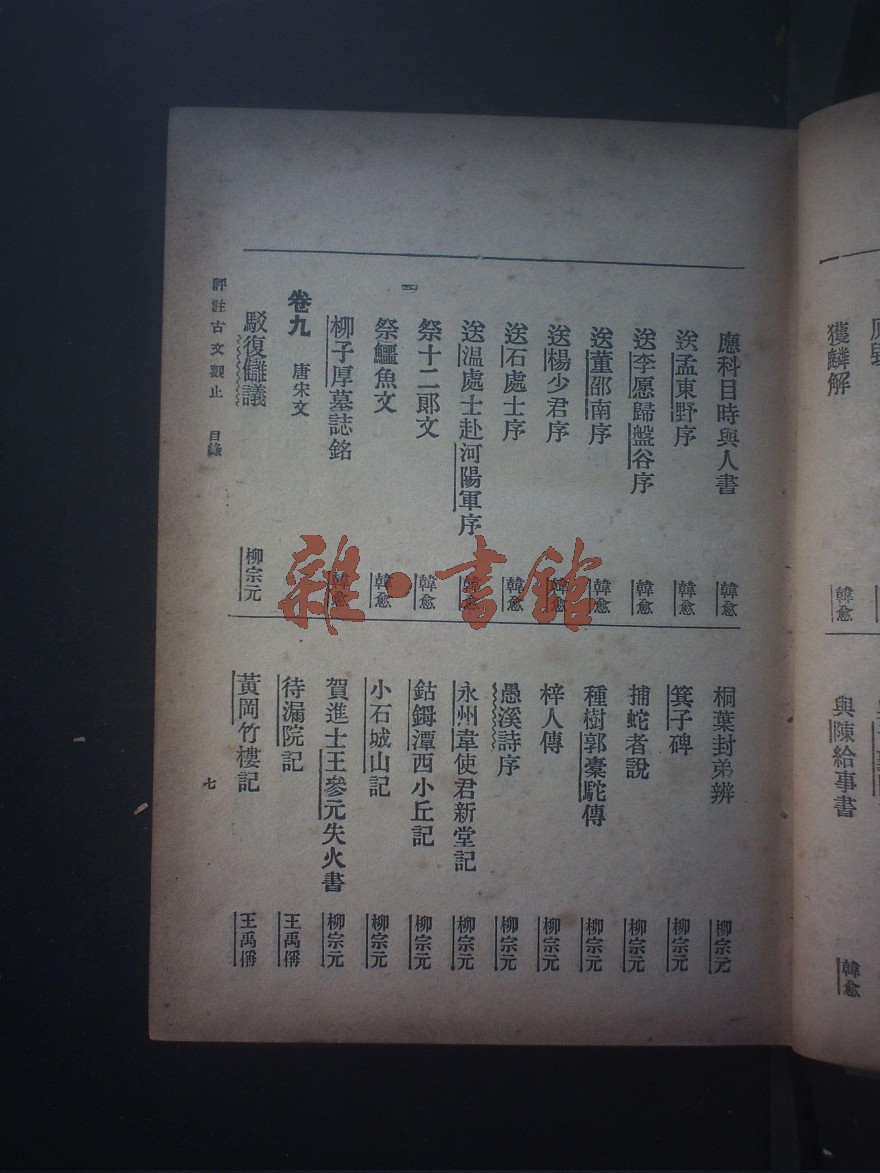 獲麟解 韓愈
與陳給事書 韓愈
應科目時與人書 韓愈
送孟東野序 韓愈
送李愿歸盤谷序 韓愈
送董邵南序 韓愈
送楊少君序 韓愈
送石處士序 韓愈
送温處士赴河陽軍序 韓愈
祭十二郎文 韓愈
祭鱷魚文 韓愈
柳子厚墓誌銘 韓愈
卷九 唐宋文
駁復讎議 柳宗元
桐葉封弟辨 柳宗元
箕子碑 柳宗元
捕蛇者說 柳宗元
種樹郭橐駝傳 柳宗元
梓人傳 柳宗元
愚溪詩序 柳宗元
永州韋使君新堂記 柳宗元
鈷鉧潭西小丘記 柳宗元
小石城山記 柳宗元
賀進士王參元失火書 柳宗元
待漏院記 王禹偁
黃岡竹樓記 王禹偁
評註古文觀止 目錄
七
雜·書館